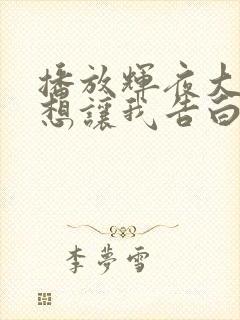 播放輝夜大
想讓我告白
李夢雪